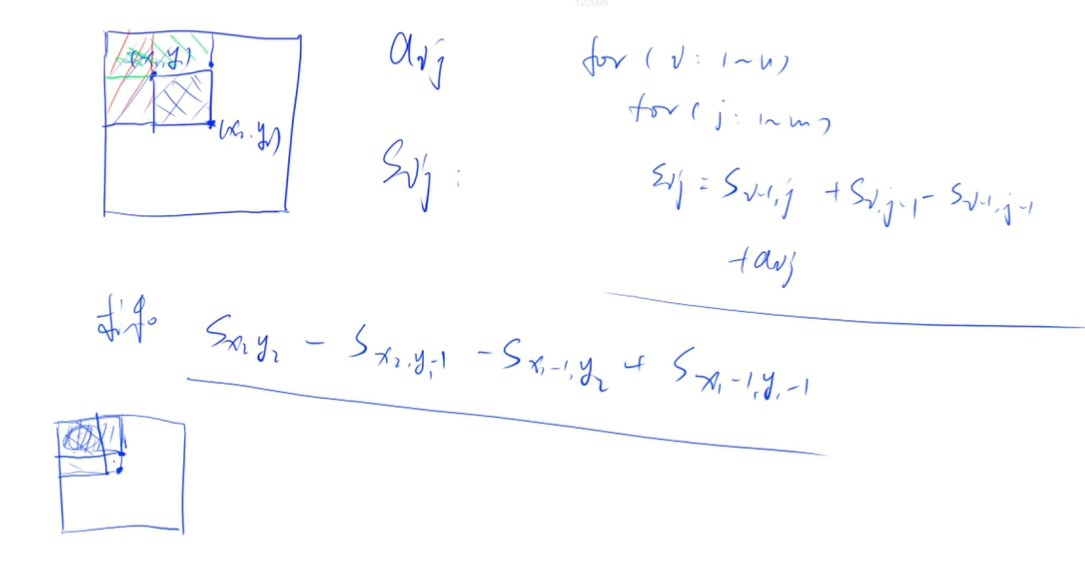 (x₁, y₁)
(x₂, y₂)
aᵢⱼ
Sᵢⱼ :
for ( i : 1~n )
for ( j : 1~m )
Sᵢⱼ = Sᵢ₋₁,ⱼ + Sᵢ,ⱼ₋₁ - Sᵢ₋₁,ⱼ₋₁
+ aᵢⱼ
S_{x₂y₂} - S_{x₂,y₁-1} - S_{x₁-1,y₂} + S_{x₁-1,y₁-1}